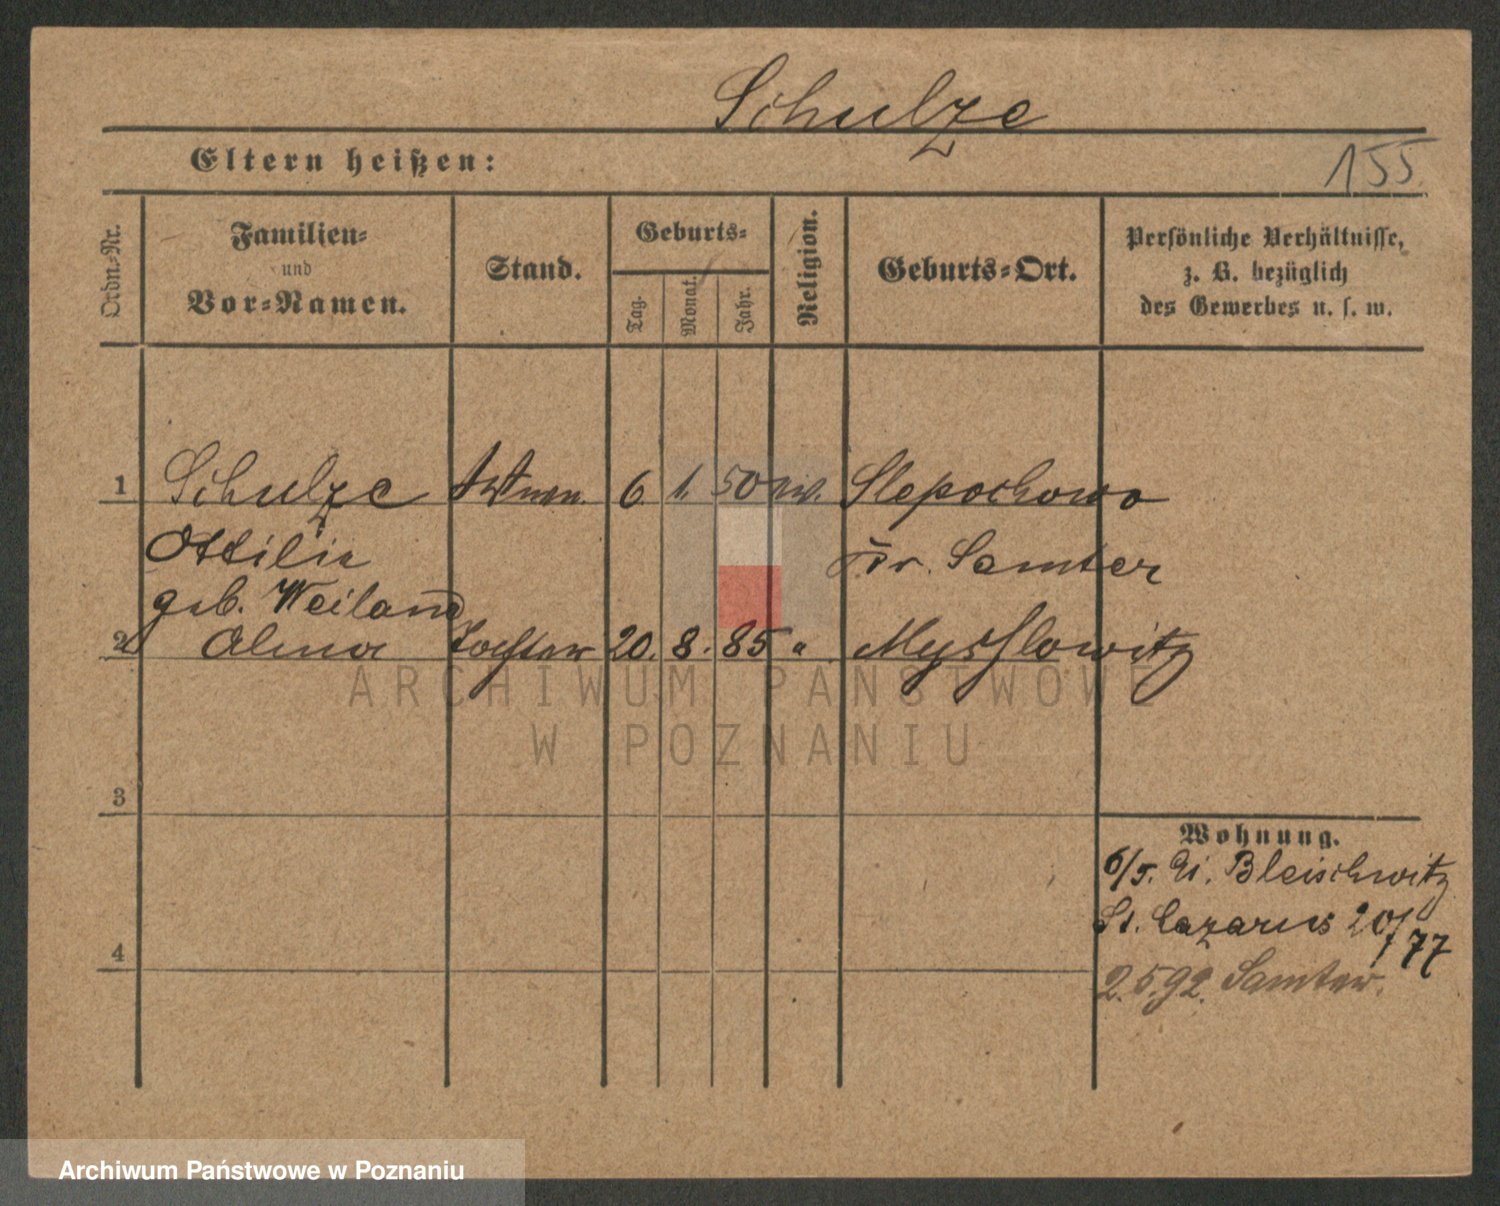 Schulze
Eltern heißen:
155.
Ordn.-Nr.
Familien-
und
Vor-Namen.
Stand.
Geburts-
Tag.
Monat.
Jahr.
Religion.
Geburts-Ort.
Persönliche Verhältnisse,
z. B. bezüglich
des Gewerbes u. s. w.
1 Schulze 6. 1. 50 Slepochowo
Ottilie Kr. Samter
geb. Weiland
2 Alma Tochter 20. 8. 85 " Mysslowitz
3
Wohnung.
6/5. Bleischwitz
St. Lazarus 20/77
4
2.5.92. Samter.
ARCHIWUM PAŃSTWOWE
W POZNANIU
Archiwum Państwowe w Poznaniu